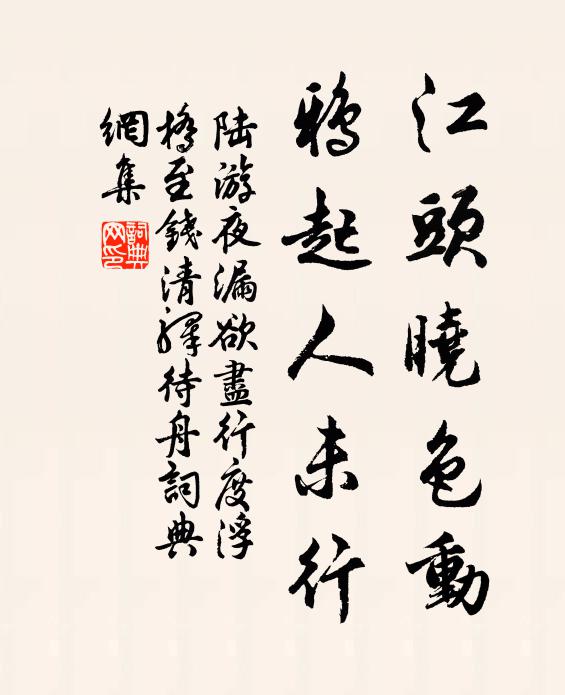 江頭曉色動
鴉起人未行
陸游夜漏欲盡行度浮
橋至錢清驛待舟詞典
網集
詞典網印